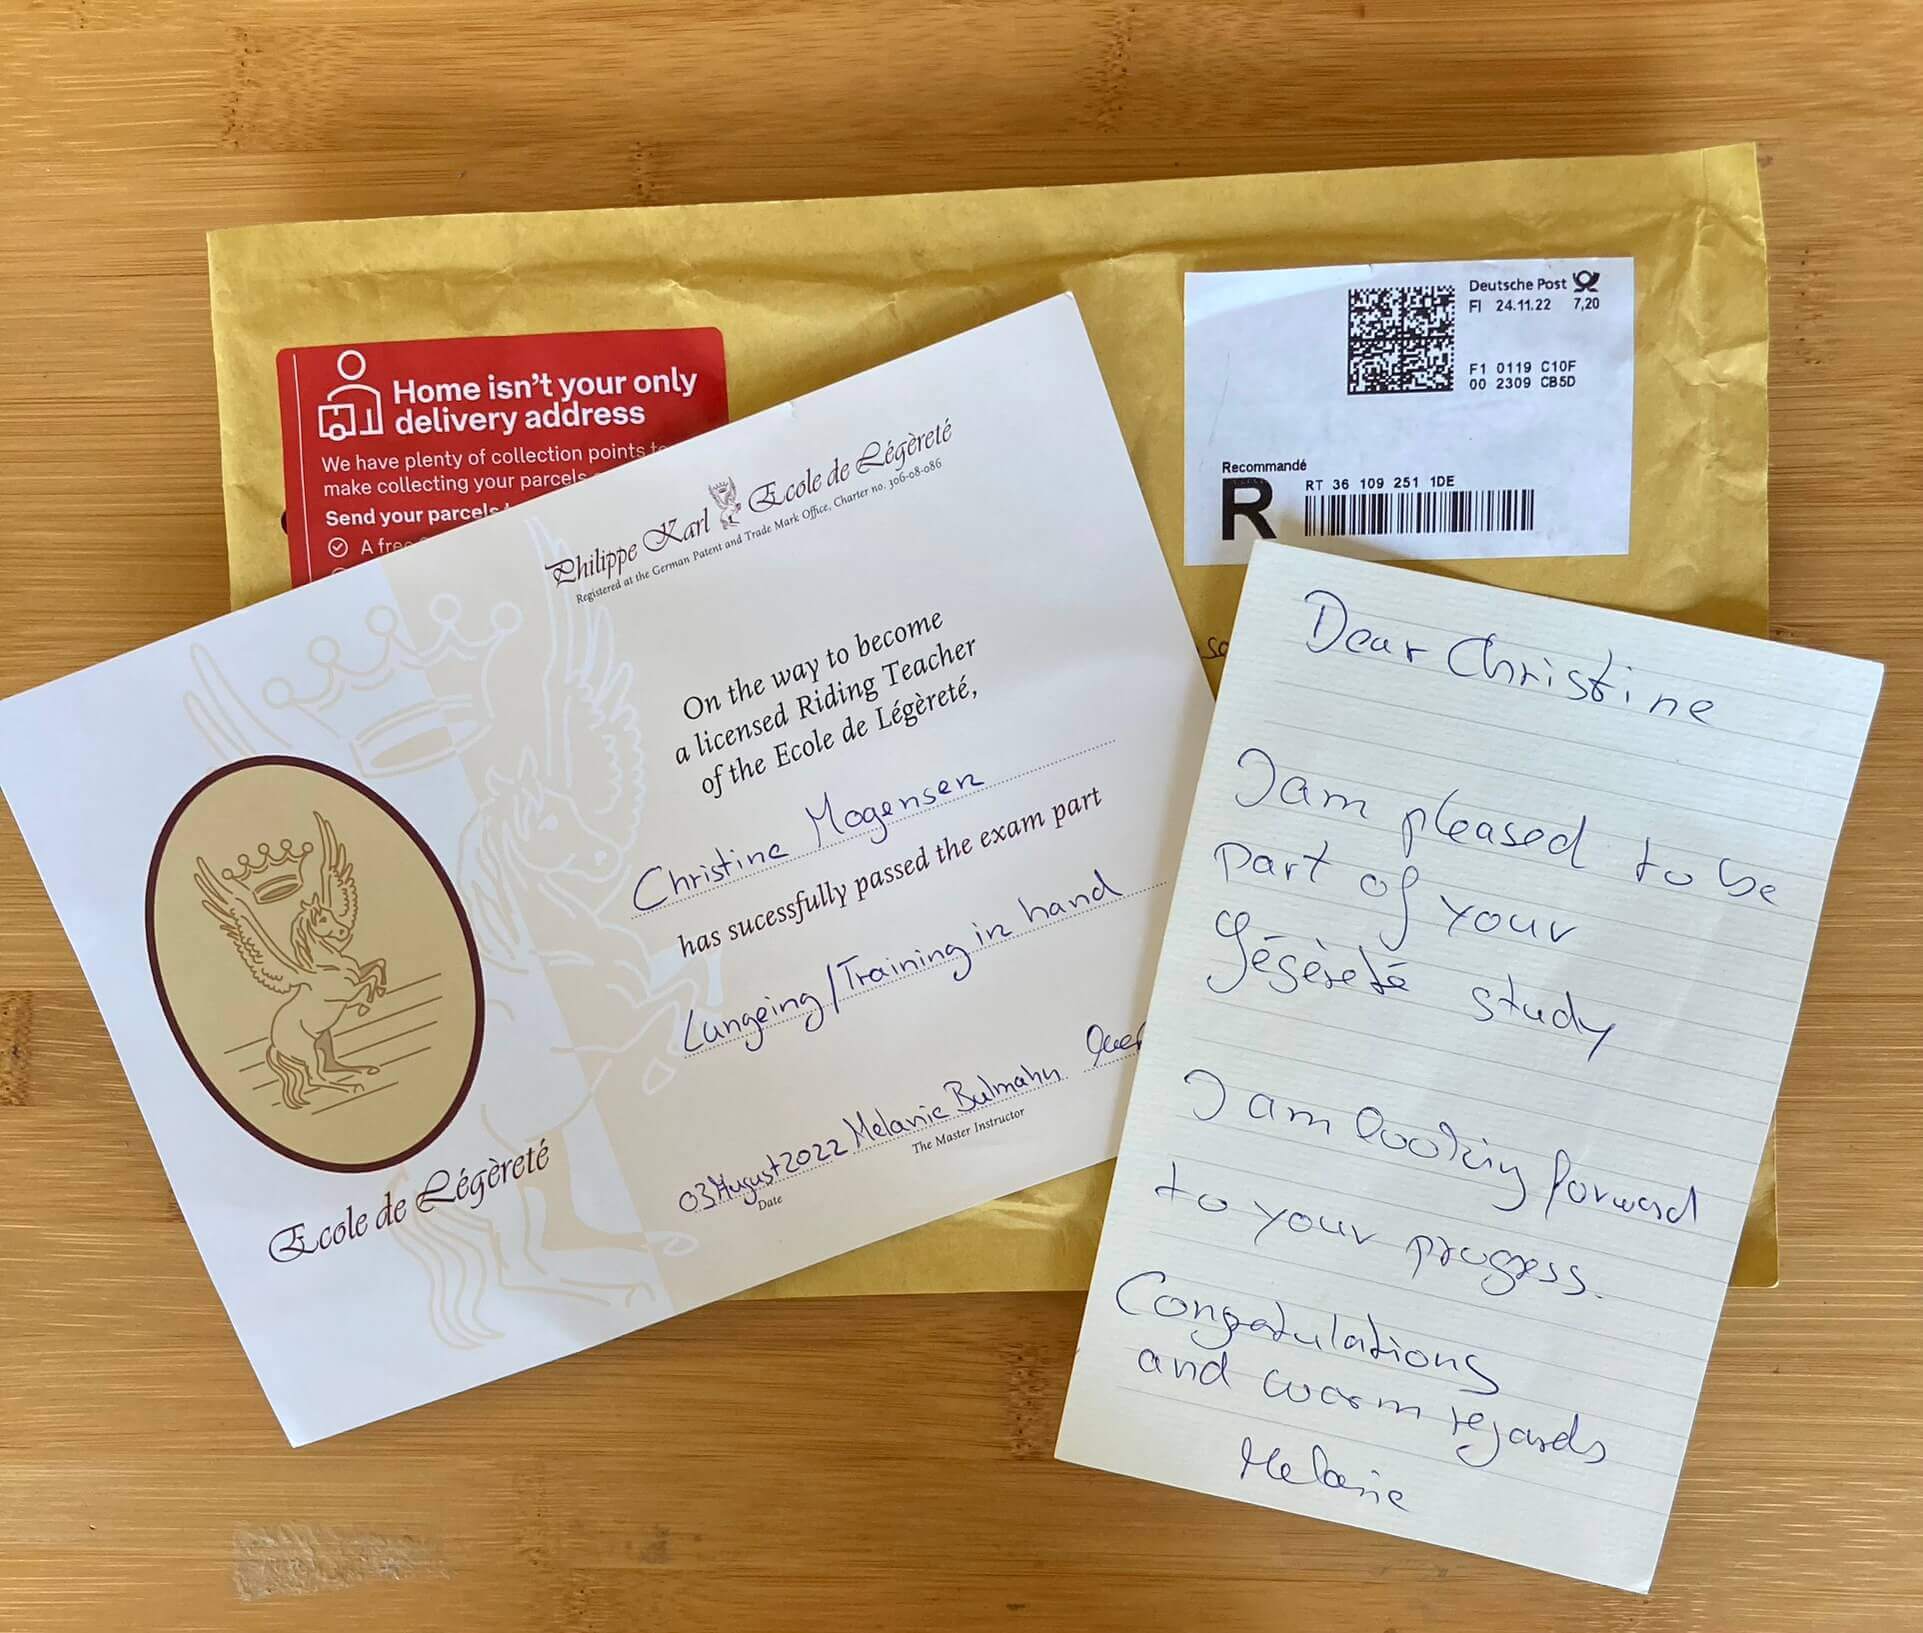 Home isn't your only
delivery address
We have plenty of collection points to
make collecting your parcels
Send your parcels
A free
Deutsche Post
FI 24.11.22 7,20
F1 0119 C10F
00 2309 CB5D
Recommandé
R
RT 36 109 251 1DE
Philippe Karl Ecole de Légèreté
Registered at the German Patent and Trade Mark Office, Charter no. 306-08-086
On the way to become
a licensed Riding Teacher
of the Ecole de Légèreté,
Christine Mogensen
has sucessfully passed the exam part
Lungeing/Training in hand
03 August 2022 Melanie Bulmahn
Date The Master Instructor
Ecole de Légèreté
Dear Christine
I am pleased to be
part of your
Légèreté study
I am looking forward
to your progress.
Congratulations
and warm regards
Melanie